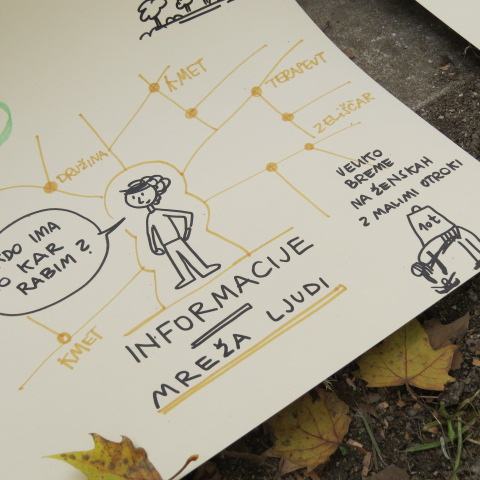 KMET
TERAPEVT
ZELIŠČAR
DRUŽINA
VELIKO
BREME
NA ŽENSKAH
Z MALIMI OTROKI
10t
KDO IMA
KAR
RABIM?
KMET
INFORMACIJE
MREŽA LJUDI